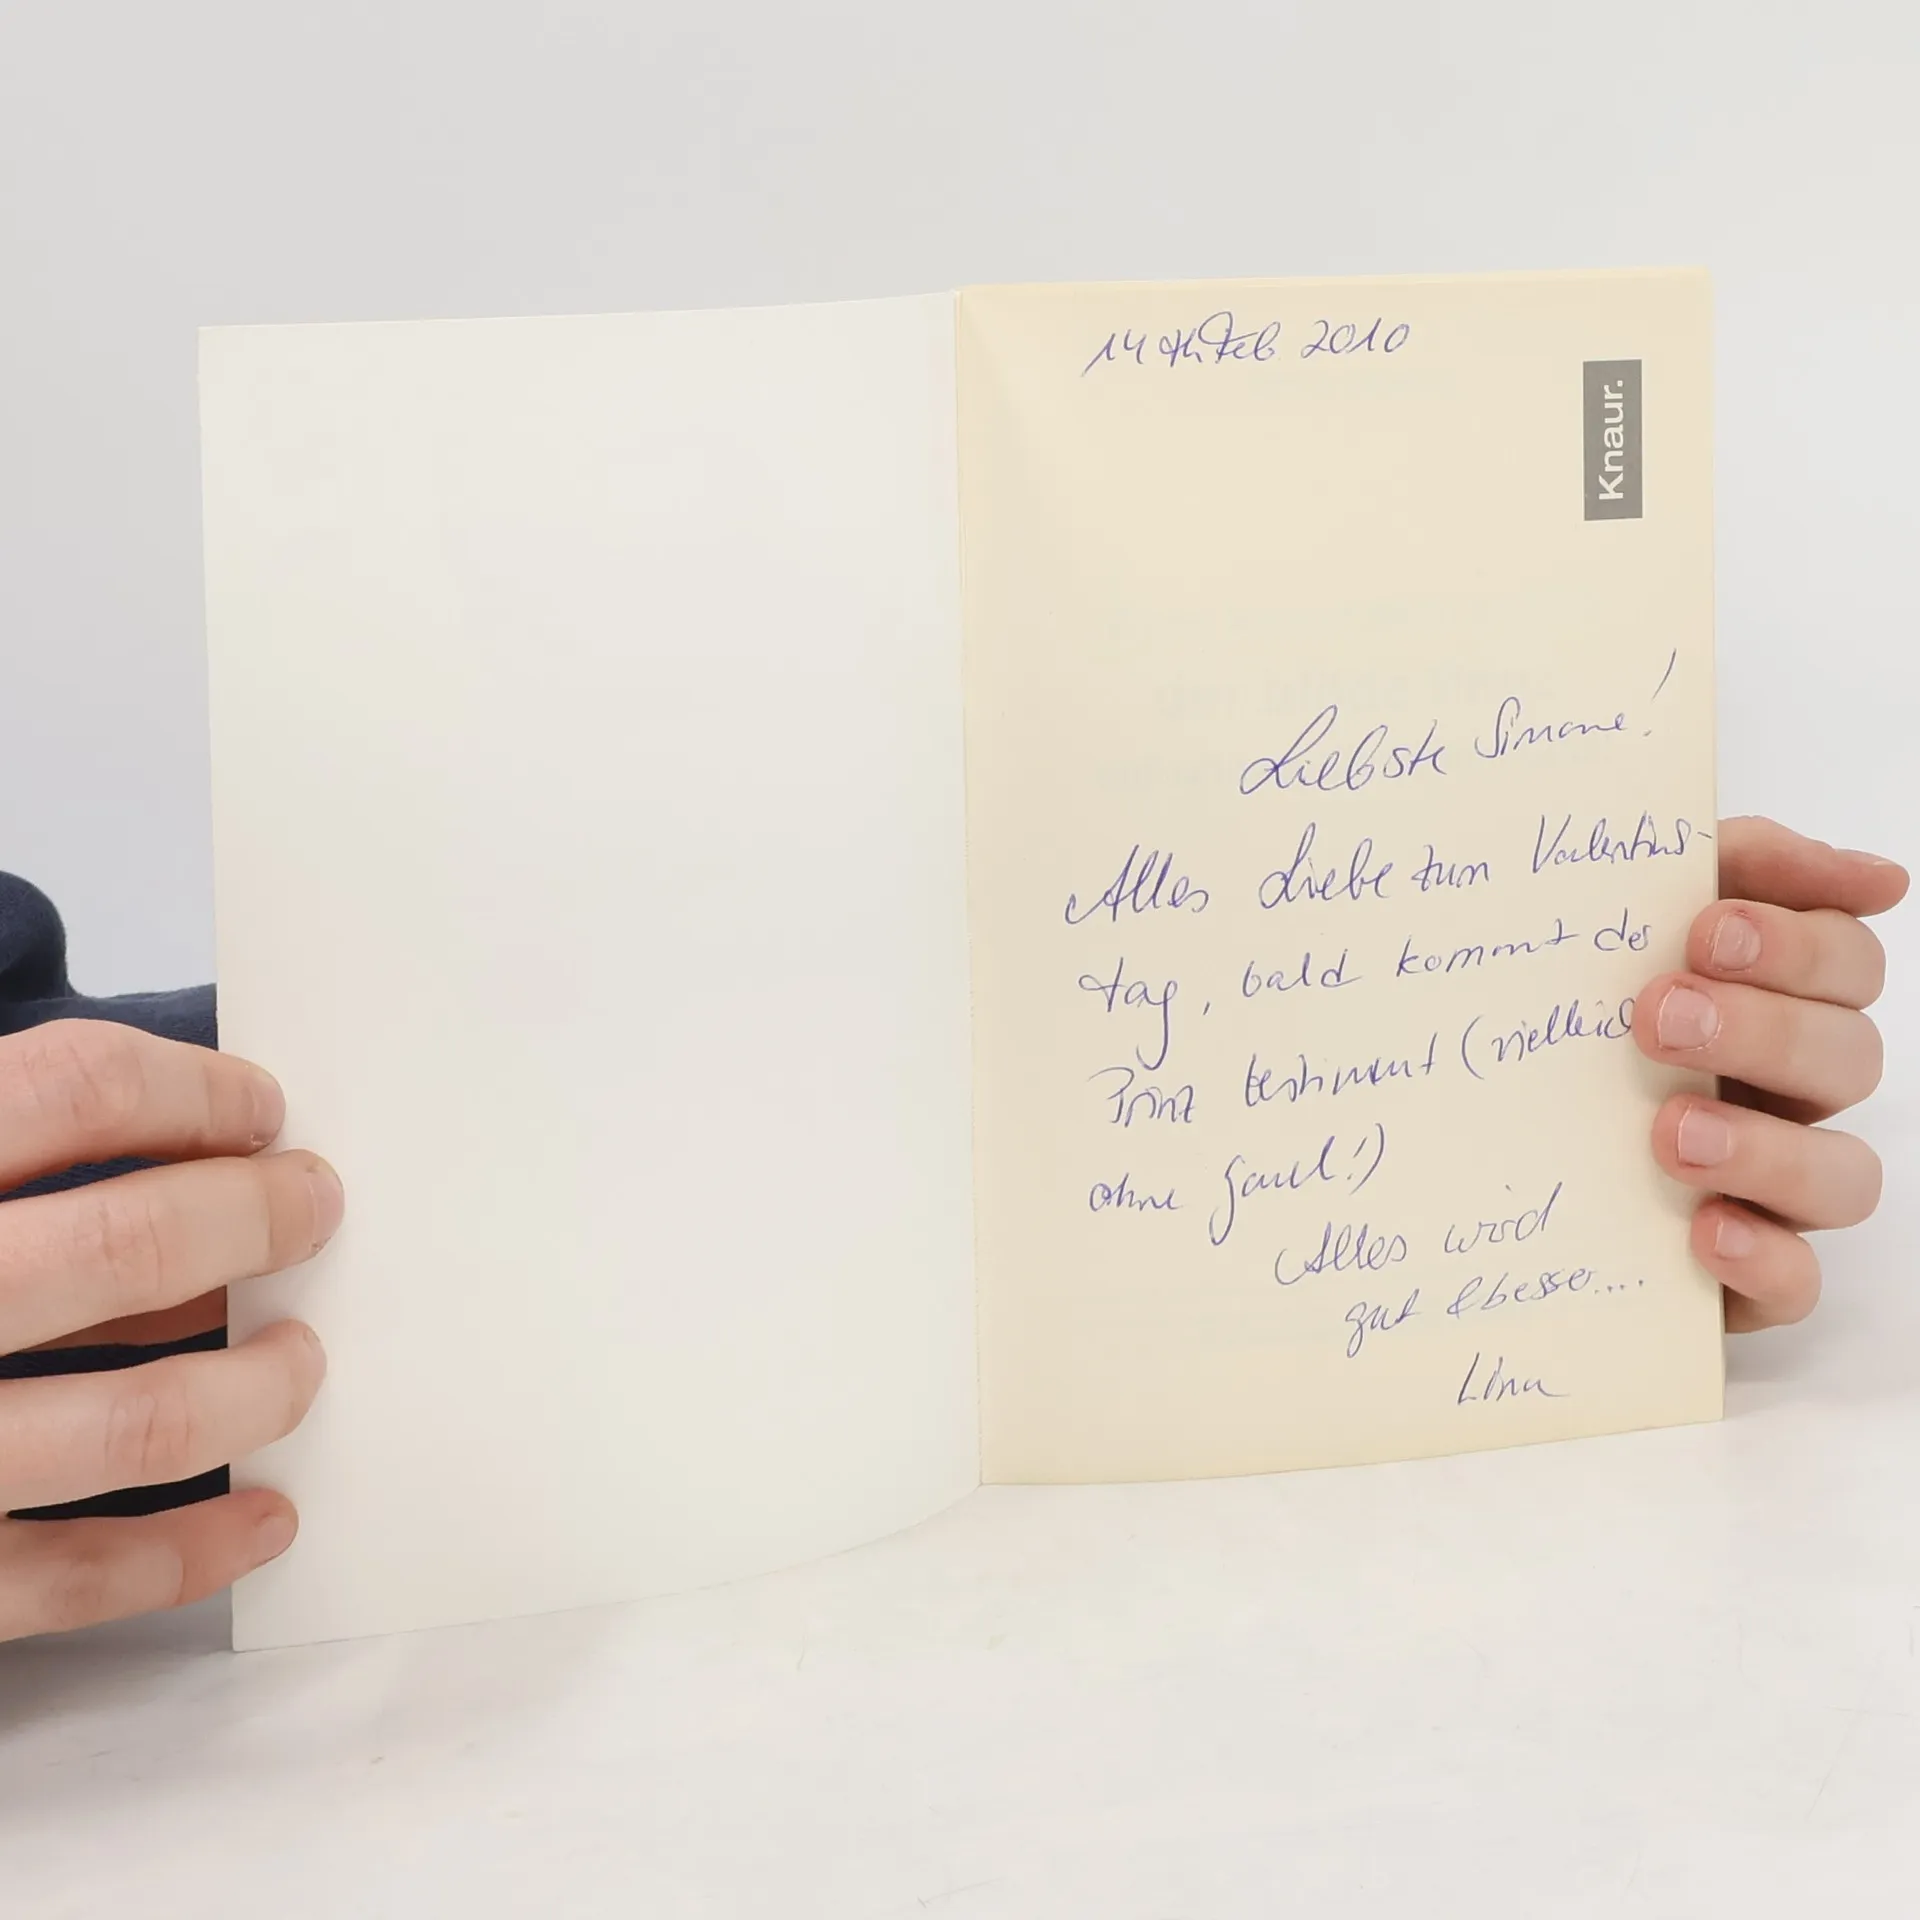 14th Feb 2010
Knaur.
Liebste Simone!
Alles Liebe zum Valentins-
tag, bald kommt der
Prinz bestimmt (vielleich
ohne Gaul!)
Alles wird
gut & besser....
Lina